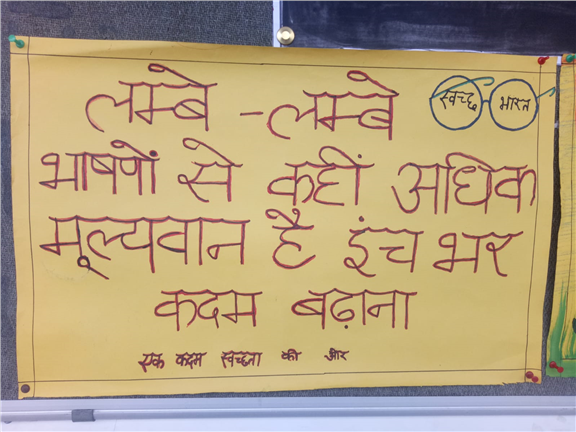 लम्बे - लम्बे
स्वच्छ भारत
भाषणों से कहीं अधिक
मूल्यवान है इंच भर
कदम बढ़ाना
एक कदम स्वच्छता की ओर